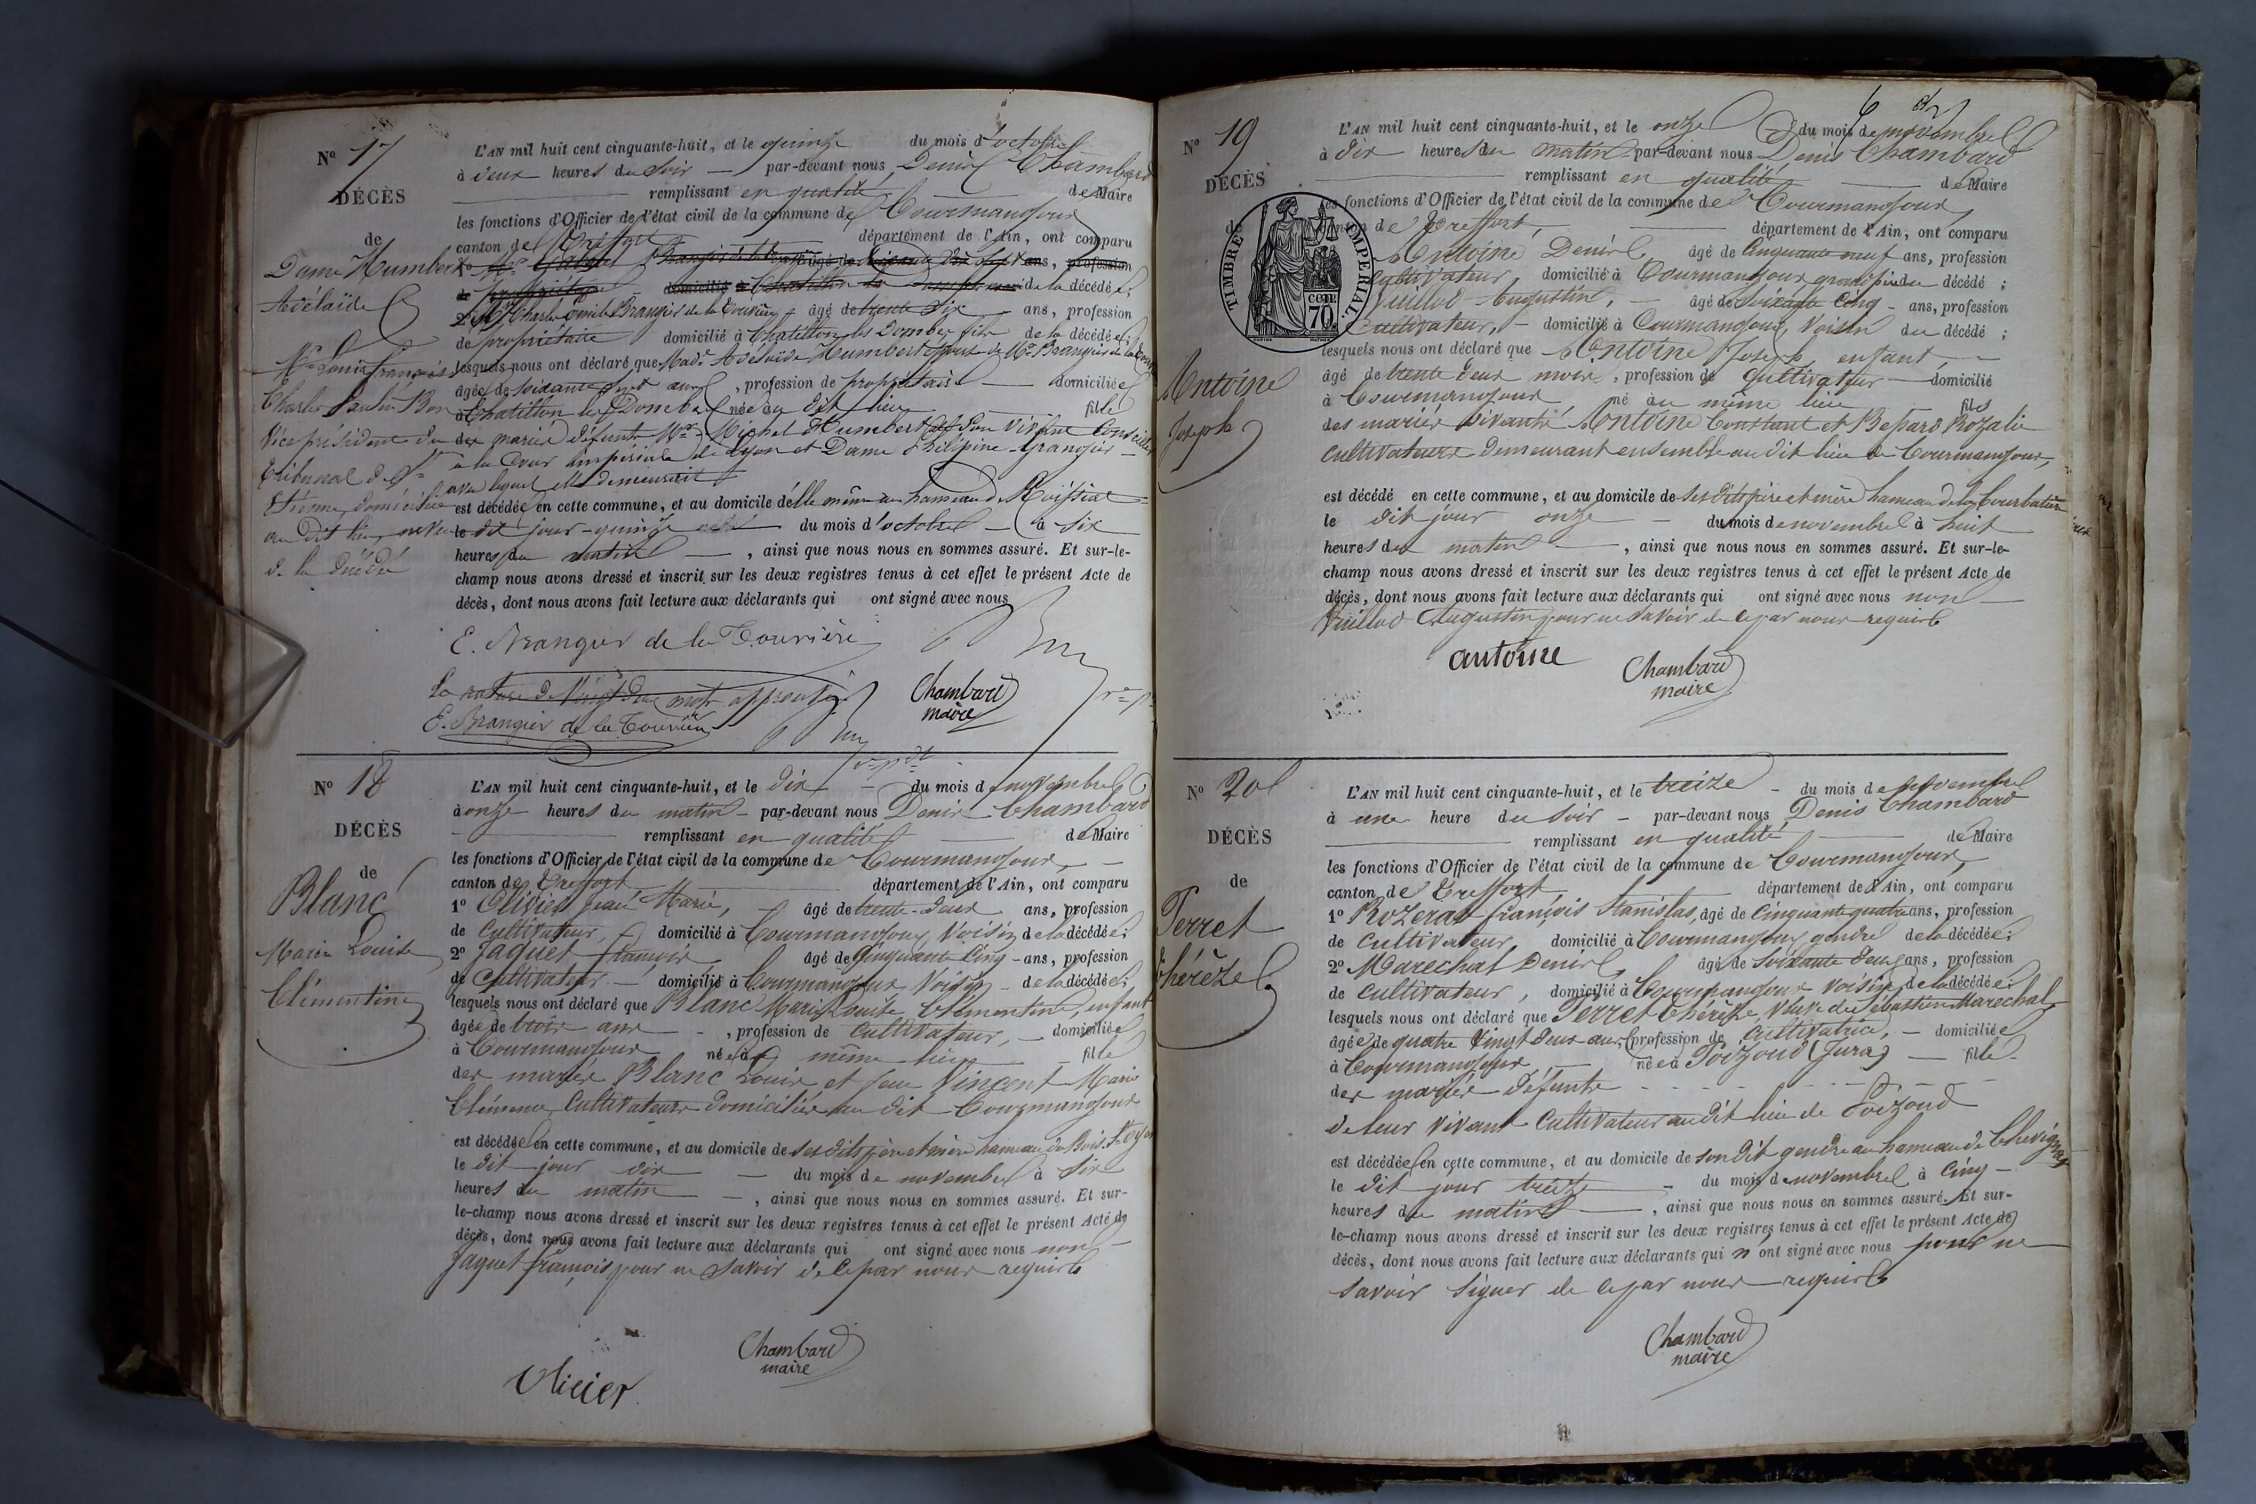 N° 17
DÉCÈS
de
Dame Humbert
Adélaïde
Mr Louis françois
Charles
Vice président du
tribunal de St
Etienne, domicilié
au dit lieu, neveu
de la décédé
L'AN mil huit cent cinquante-huit, et le quinze du mois d'octobre
à deux heures du soir — par-devant nous Denis Chambard
remplissant en qualité de Maire
les fonctions d'Officier de l'état civil de la commune de Courmangoux
canton de Treffort département de l'Ain, ont comparu
ans, profession
de propriétaire domicilié à Chatillon de la décédée;
2° Mr Charles Emile Brangier de la Tourrière âgé de trente six ans, profession
de propriétaire domicilié à Chatillon les Dombes fils de la décédée;
lesquels nous ont déclaré que Made Adélaïde Humbert épouse de Mr Brangier de la
âgée de soixante ans, profession de propriétaire — domiciliée
à Chatillon les Dombes née au dit lieu fille
des mariés défunts Mr Michel Humbert de son vivant Conseiller
à la Cour impériale de Lyon et Dame Philipine Grangier
avec lequel elle demeurait
est décédée en cette commune, et au domicile d'elle même au hameau de Roissiat
le dit jour quinze du mois d'octobre à six
heures du matin —, ainsi que nous nous en sommes assuré. Et sur-le-
champ nous avons dressé et inscrit sur les deux registres tenus à cet effet le présent Acte de
décès, dont nous avons fait lecture aux déclarants qui ont signé avec nous
E. Brangier de la Tourrière
la rature de Vingt deux mots approuvée
E. Brangier de la Tourrière
Chambard
maire
N° 18
DÉCÈS
de
Blanc
Marie Louise
Clémentine
L'AN mil huit cent cinquante-huit, et le dix — du mois de novembre
à onze heures du matin — par-devant nous Denis Chambard
remplissant en qualité de Maire
les fonctions d'Officier de l'état civil de la commune de Courmangoux, —
canton de Treffort département de l'Ain, ont comparu
1° Olivier Jean Marie, — âgé de trente-deux ans, profession
de Cultivateur, — domicilié à Courmangoux, Voisin de la décédée;
2° Jaquet françois âgé de Cinquante Cinq - ans, profession
de Cultivateur — domicilié à Courmangoux Voisin — de la décédée;
lesquels nous ont déclaré que Blanc Marie Louise Clémentine, enfant
âgée de trois ans —, profession de Cultivateur, — domiciliée
à Courmangoux née à même lieu — fille
des mariés Blanc Louis et feue Vincent Marie
Clémence, Cultivateurs domiciliés au dit Courmangoux
est décédée en cette commune, et au domicile de ses dits père et mère hameau du Bois
le dit jour dix — du mois de novembre à six
heures du matin —, ainsi que nous nous en sommes assuré. Et sur-
le-champ nous avons dressé et inscrit sur les deux registres tenus à cet effet le présent Acte de
décès, dont nous avons fait lecture aux déclarants qui ont signé avec nous non
Jaquet françois pour ne savoir de ce par nous requis
Olivier
Chambard
maire
6
N° 19
DÉCÈS
de
Antoine
Joseph
TIMBRE IMPERIAL
70 CEN.
L'AN mil huit cent cinquante-huit, et le onze du mois de novembre
à dix heures du matin par-devant nous Denis Chambard
remplissant en qualité de Maire
les fonctions d'Officier de l'état civil de la commune de Courmangoux
canton de Treffort, département de l'Ain, ont comparu
Antoine Denis âgé de Cinquante neuf ans, profession
Cultivateur, domicilié à Courmangoux grand père du décédé;
Vuillod Augustin, — âgé de soixante Cinq - ans, profession
Cultivateur, — domicilié à Courmangoux, Voisin du décédé;
lesquels nous ont déclaré que Antoine Joseph, enfant —
âgé de trente deux mois, profession de Cultivateur — domicilié
à Courmangoux né au même lieu fils
des mariés vivants Antoine Constant et Bépard Rozalie
cultivateurs demeurant ensemble au dit lieu de Courmangoux,
est décédé en cette commune, et au domicile de ses dits père et mère hameau de la Courbatière
le dit jour onze — du mois de novembre à huit
heures du matin —, ainsi que nous nous en sommes assuré. Et sur-le-
champ nous avons dressé et inscrit sur les deux registres tenus à cet effet le présent Acte de
décès, dont nous avons fait lecture aux déclarants qui ont signé avec nous non —
Vuillod Augustin pour ne savoir de ce par nous requis
antoine
Chambard
maire
N° 20
DÉCÈS
de
Perret
thérèze
L'AN mil huit cent cinquante-huit, et le treize — du mois de novembre
à une heure du soir — par-devant nous Denis Chambard
remplissant en qualité de Maire
les fonctions d'Officier de l'état civil de la commune de Courmangoux,
canton de Treffort, département de l'Ain, ont comparu
1° Rozerat françois Stanislas, âgé de Cinquante quatre ans, profession
de cultivateur, domicilié à Courmangoux gendre de la décédée;
2° Marechal Denis âgé de soixante deux ans, profession
de cultivateur, domicilié à Courmangoux Voisin de la décédée;
lesquels nous ont déclaré que Perret thérèze, veuve de Sébastien Marechal,
âgée de quatre Vingt deux ans, profession de cultivatrice, — domiciliée
à Courmangoux née à (Jura) — fille
des mariés défunts
de leur vivant Cultivateur au dit lieu de
est décédée en cette commune, et au domicile de son dit gendre au hameau de Chevignat
le dit jour treize — du mois de novembre à Cinq —
heures du matin —, ainsi que nous nous en sommes assuré. Et sur-
le-champ nous avons dressé et inscrit sur les deux registres tenus à cet effet le présent Acte de
décès, dont nous avons fait lecture aux déclarants qui n'ont signé avec nous pour ne
savoir signer de ce par nous requis
Chambard
maire